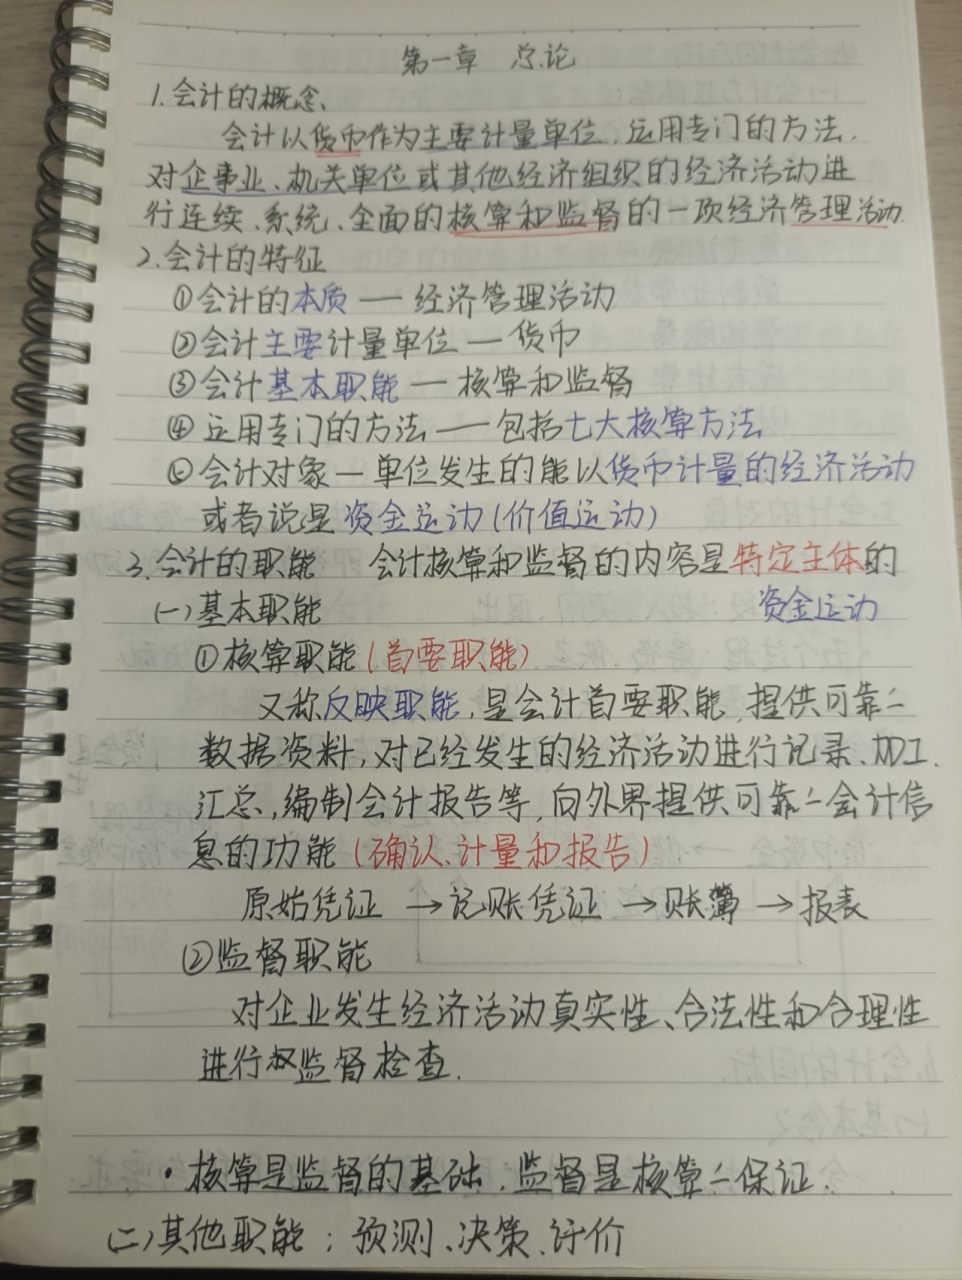 第一章 总论
1.会计的概念、
会计以货币作为主要计量单位、运用专门的方法、
对企事业、机关单位或其他经济组织的经济活动进
行连续、系统、全面的核算和监督的一项经济管理活动.
2.会计的特征
①会计的本质 — 经济管理活动
②会计主要计量单位 — 货币
③会计基本职能 — 核算和监督
④运用专门的方法 — 包括七大核算方法
⑤会计对象 — 单位发生的能以货币计量的经济活动
或者说是资金运动(价值运动)
3.会计的职能 会计核算和监督的内容是特定主体的
资金运动
(一)基本职能
①核算职能(首要职能)
又称反映职能,是会计首要职能,提供可靠二
数据资料,对已经发生的经济活动进行记录、加工、
汇总,编制会计报告等,向外界提供可靠二会计信
息的功能(确认、计量和报告)
原始凭证 → 记账凭证 → 账簿 → 报表
②监督职能
对企业发生经济活动真实性、合法性和合理性
进行监督检查.
·核算是监督的基础,监督是核算二保证.
(二)其他职能:预测、决策、评价